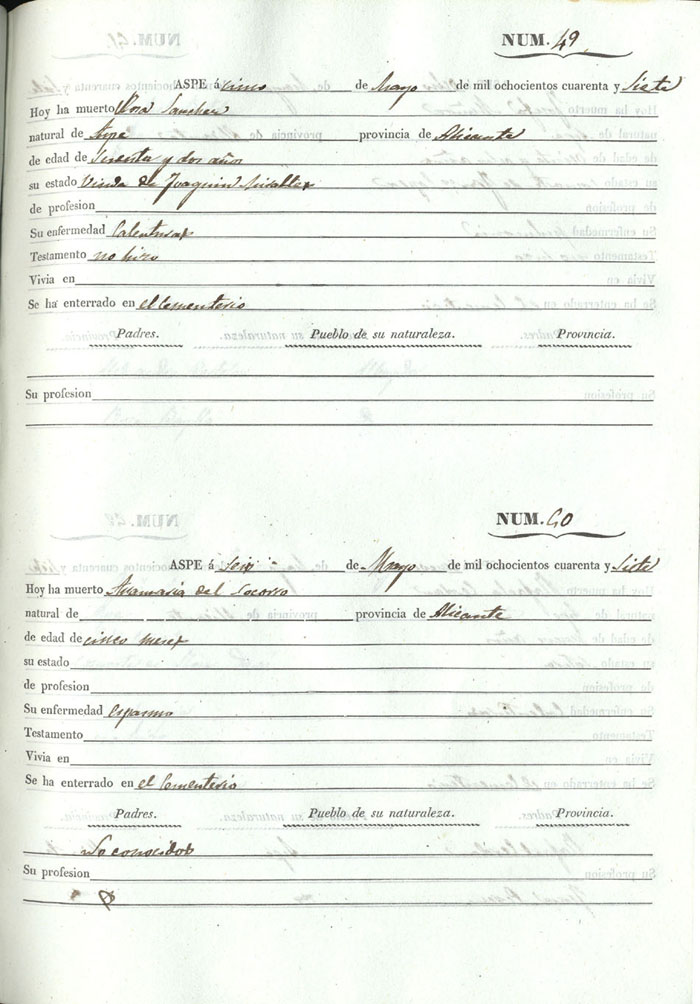 NUM. 49
ASPE á cinco de Mayo de mil ochocientos cuarenta y Siete
Hoy ha muerto Rosa Sanchez
natural de Aspe provincia de Alicante
de edad de Setenta y dos años
su estado Viuda de Joaquin Miralles
de profesion
Su enfermedad Calentura
Testamento no hizo
Vivia en
Se ha enterrado en el Cementerio
Padres. Pueblo de su naturaleza. Provincia.
Su profesion
NUM. 50
ASPE á Seis de Mayo de mil ochocientos cuarenta y Siete
Hoy ha muerto Anamaria del Socorro
natural de provincia de Alicante
de edad de cinco meses
su estado
de profesion
Su enfermedad Espasmo
Testamento
Vivia en
Se ha enterrado en el Cementerio
Padres. Pueblo de su naturaleza. Provincia.
No conocidos
Su profesion